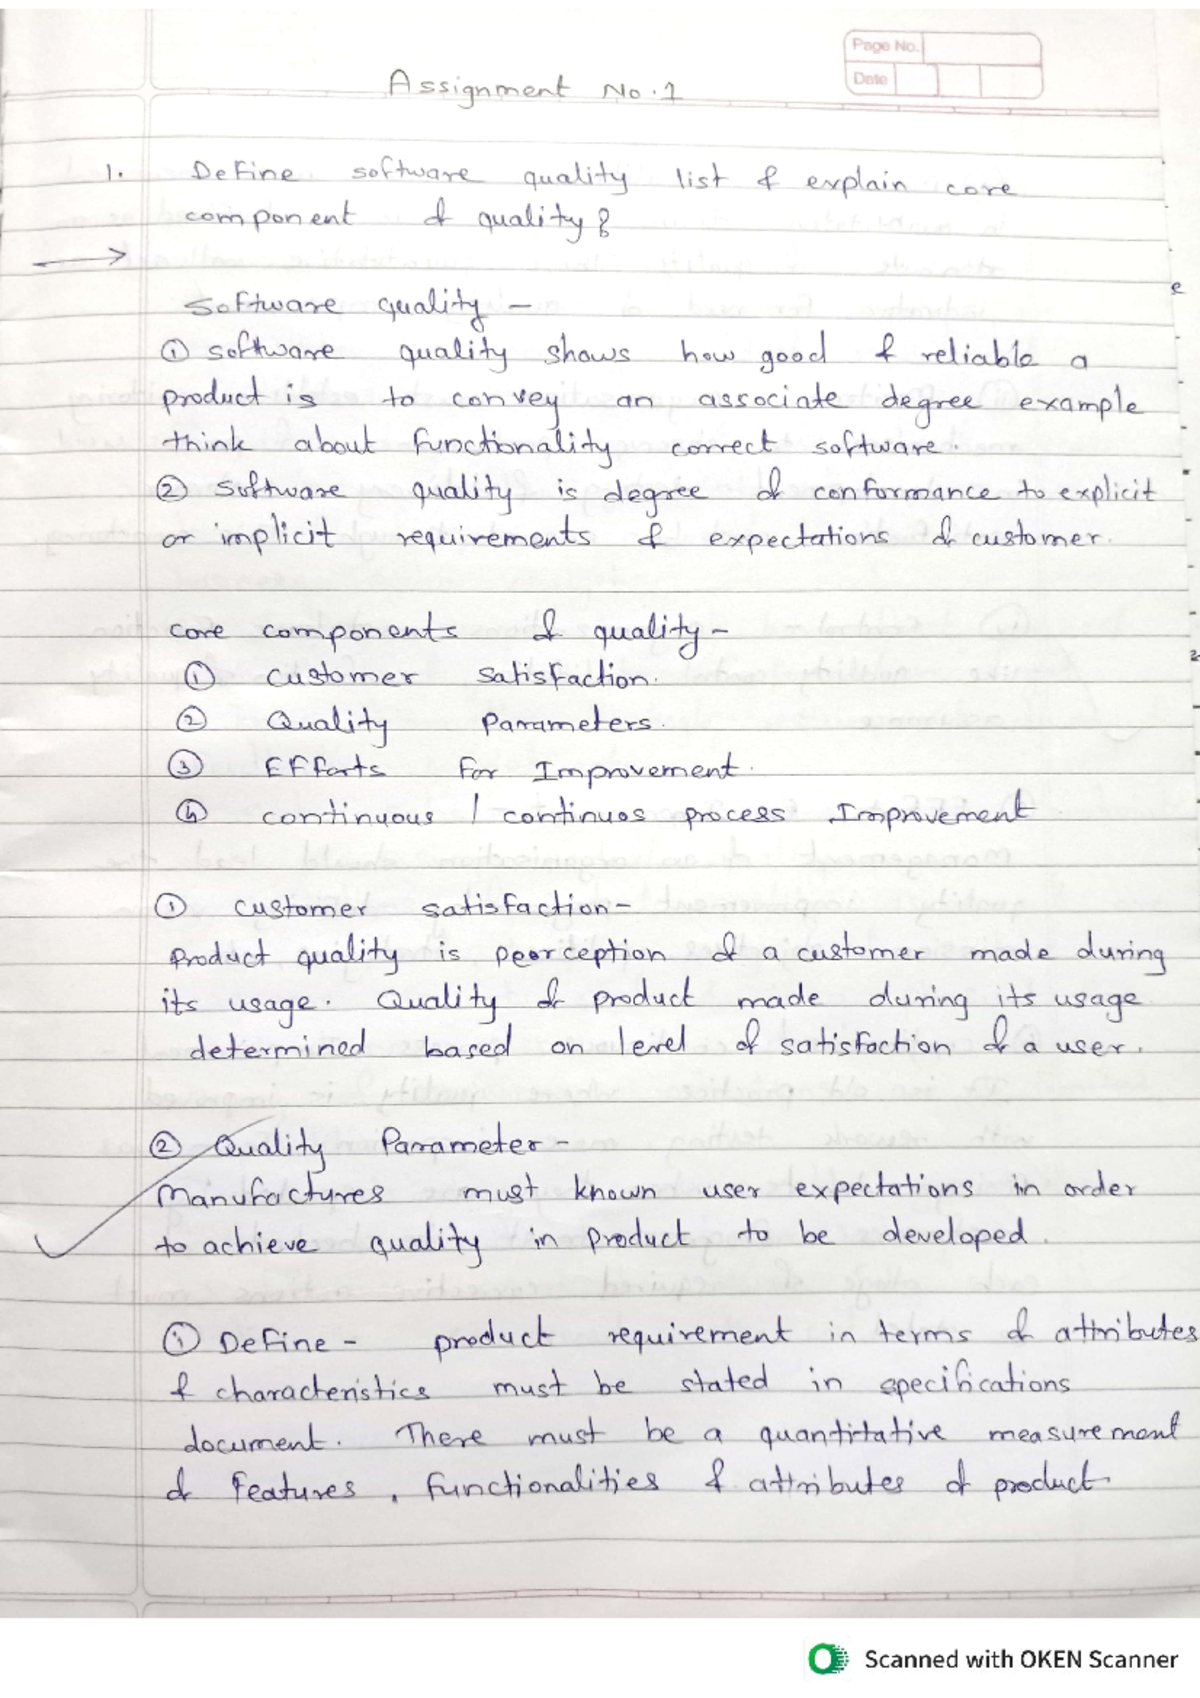 Page No.
Date
Assignment No.1
1. Define software quality list & explain core
component of quality?
Software quality -
① software quality shows how good & reliable a
product is to convey an associate degree example
think about functionality correct software.
② Software quality is degree of conformance to explicit
or implicit requirements & expectations of customer.
core components of quality -
① customer satisfaction.
② Quality Parameters.
③ Efforts for Improvement.
④ continuous / continuos process Improvement
① customer satisfaction-
Product quality is peerception of a customer made during
its usage. Quality of product made during its usage
determined based on level of satisfaction of a user.
② Quality Parameter -
Manufactures must known user expectations in order
to achieve quality in product to be developed.
① Define - product requirement in terms of attributes
& characteristics must be stated in specifications
document. There must be a quantitative measurement
of features, functionalities & attributes of product
Scanned with OKEN Scanner